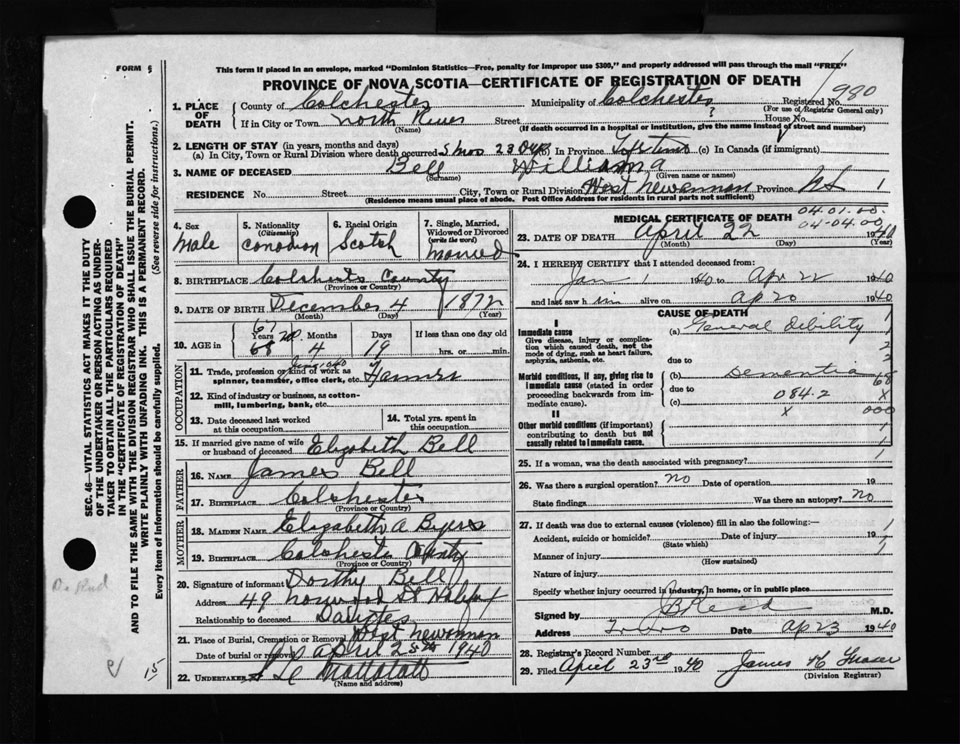 FORM 5
This form if placed in an envelope, marked "Dominion Statistics—Free, penalty for improper use $300," and properly addressed will pass through the mail "FREE"
PROVINCE OF NOVA SCOTIA—CERTIFICATE OF REGISTRATION OF DEATH
1. PLACE OF DEATH
County of Colchester Municipality of Colchester Registered No. 980
(For use of Registrar General only)
If in City or Town North River Street ? House No.
(Name) (If death occurred in a hospital or institution, give the name instead of street and number)
2. LENGTH OF STAY (in years, months and days)
(a) In City, Town or Rural Division where death occurred 5 mos 23 Dys (b) In Province Life time (c) In Canada (if immigrant)
3. NAME OF DECEASED Bell William A
(Surname) (Given name or names)
RESIDENCE No. Street City, Town or Rural Division West Newannan Province NS 1
(Residence means usual place of abode. Post Office Address for residents in rural parts not sufficient)
4. Sex Male
5. Nationality (Citizenship) Canadian
6. Racial Origin Scotch
7. Single, Married, Widowed or Divorced (write the word) Married
8. BIRTHPLACE Colchester County
(Province or Country)
9. DATE OF BIRTH December 4 1872
(Month) (Day) (Year)
10. AGE in 67 Years 68 Months 4 Days 19 If less than one day old hrs. or min.
OCCUPATION
11. Trade, profession or kind of work as spinner, teamster, office clerk, etc. Farmer
12. Kind of industry or business, as cotton-mill, lumbering, bank, etc.
13. Date deceased last worked at this occupation
14. Total yrs. spent in this occupation
15. If married give name of wife or husband of deceased Elizabeth Bell
FATHER
16. NAME James Bell
17. BIRTHPLACE Colchester
(Province or Country)
MOTHER
18. MAIDEN NAME Elizabeth A Byers
19. BIRTHPLACE Colchester County
(Province or Country)
20. Signature of informant Dorothy Bell
Address 49 Norwood St Halifax
Relationship to deceased Daughter
21. Place of Burial, Cremation or Removal West Newannan
Date of burial or removal April 25th 1940
22. UNDERTAKER
(Name and address)
MEDICAL CERTIFICATE OF DEATH
04.01.00.
04-04.00
23. DATE OF DEATH April 22 1940
(Month) (Day) (Year)
24. I HEREBY CERTIFY that I attended deceased from:
Jan 1 1940 to Apr 22 1940
and last saw him alive on Ap 20 1940
CAUSE OF DEATH
I
Immediate cause
Give disease, injury or complication which caused death, not the mode of dying, such as heart failure, asphyxia, asthenia, etc.
(a) General debility
due to
Morbid conditions, if any, giving rise to immediate cause (stated in order proceeding backwards from immediate cause).
(b) Dementia
due to 084.2
(c) x 000
II
Other morbid conditions (if important) contributing to death but not causally related to immediate cause.
25. If a woman, was the death associated with pregnancy?
26. Was there a surgical operation? No Date of operation 19
State findings Was there an autopsy? No
27. If death was due to external causes (violence) fill in also the following:—
Accident, suicide or homicide? Date of injury 19
(State which)
Manner of injury
(How sustained)
Nature of injury
Specify whether injury occurred in industry, in home, or in public place
Signed by J B Reid M.D.
Address Truro Date Ap 23 1940
28. Registrar's Record Number
29. Filed April 23rd 1940 James K
(Division Registrar)
SEC. 46—VITAL STATISTICS ACT MAKES IT THE DUTY OF THE UNDERTAKER OR PERSON ACTING AS UNDERTAKER TO OBTAIN ALL THE PARTICULARS REQUIRED IN THE "CERTIFICATE OF REGISTRATION OF DEATH" AND TO FILE THE SAME WITH THE DIVISION REGISTRAR WHO SHALL ISSUE THE BURIAL PERMIT.
WRITE PLAINLY WITH UNFADING INK. THIS IS A PERMANENT RECORD.
Every item of information should be carefully supplied. (See reverse side for instructions.)
15